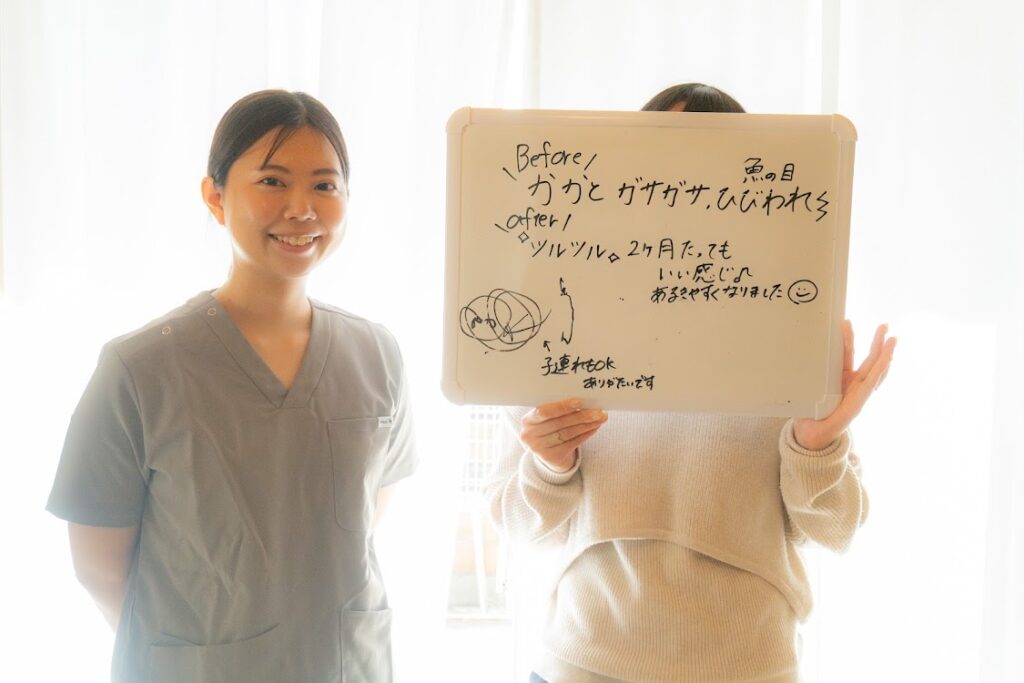 Before
魚の目
かかと ガサガサ、ひびわれ
after
ツルツル。2ヶ月たっても
いい感じ♪
あるきやすくなりました
子連れもOK
ありがたいです